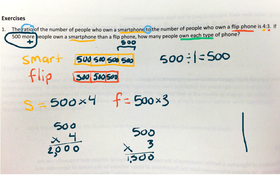 Exercises
1. The ratio of the number of people who own a smartphone to the number of people who own a flip phone is 4:3. If
500 more people own a smartphone than a flip phone, how many people own each type of phone?
500
smart 500 500 500 500
flip 500 500 500
500 ÷ 1 = 500
S = 500 × 4 f = 500 × 3
500
× 4
2,000
500
× 3
1,500